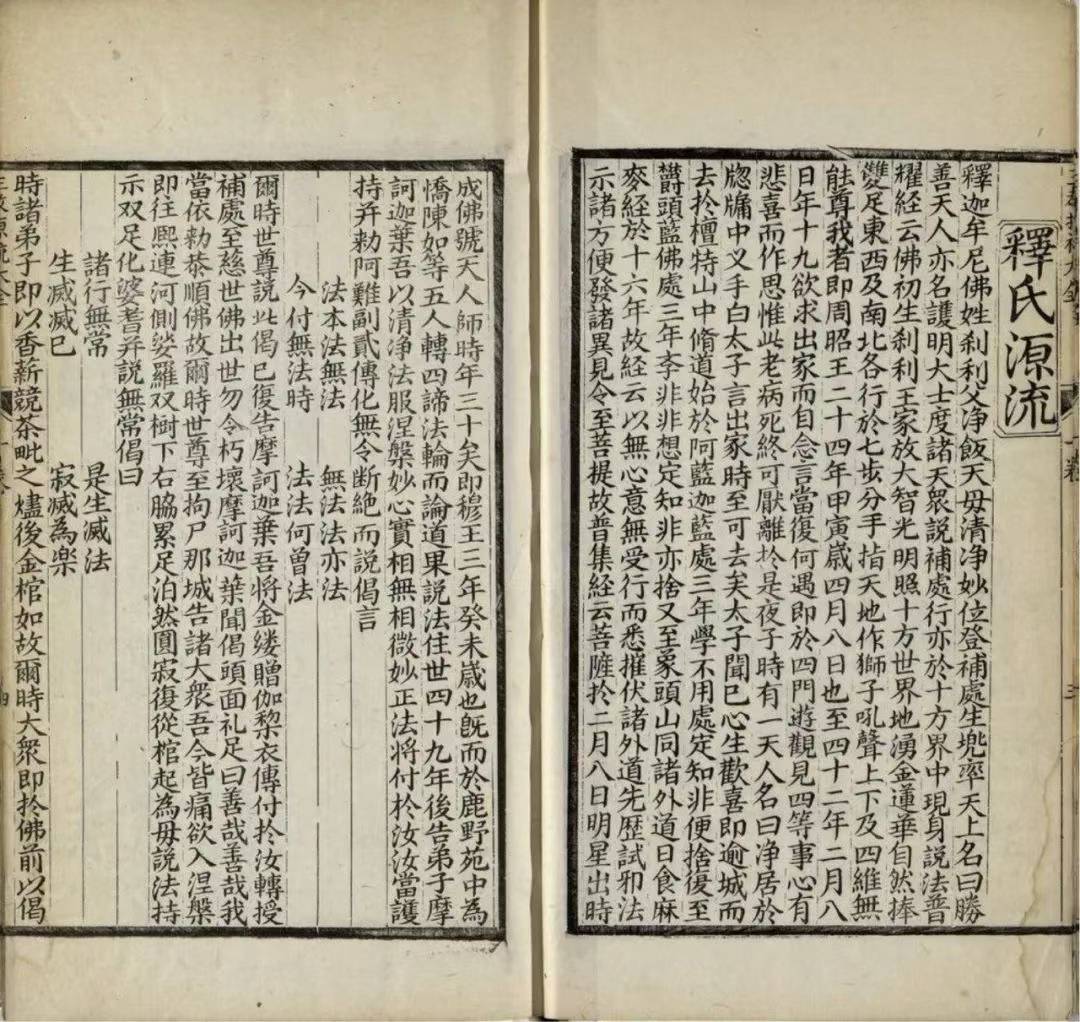 釋氏源流
釋迦牟尼佛姓刹利父淨飯天母清淨妙位登補處生兠率天上名曰勝
善天人亦名護明大士度諸天衆説補處行亦於十方界中現身説法普
耀經云佛初生刹利王家放大智光明照十方世界地湧金蓮華自然捧
雙足東西及南北各行於七步分手指天地作獅子吼聲上下及四維無
能尊我者即周昭王二十四年甲寅歳四月八日也至四十二年二月八
日年十九欲求出家而自念言當復何遇即於四門遊觀見四等事心有
悲喜而作思惟此老病死終可厭離扵是夜子時有一天人名曰净居於
窓牖中叉手白太子言出家時至可去矣太子聞已心生歡喜即逾城而
去扵檀特山中脩道始於阿藍迦藍處三年學不用處定知非便捨復至
欝頭藍佛處三年李非非想定知非亦捨又至象頭山同諸外道日食麻
麥經於十六年故經云以無心意無受行而悉摧伏諸外道先歷試邪法
示諸方便發諸異見令至菩提故普集経云菩薩扵二月八日明星出時
成佛號天人師時年三十矣即穆王三年癸未歳也旣而於鹿野苑中為
憍陳如等五人轉四諦法輪而論道果説法住世四十九年後告弟子摩
訶迦葉吾以清净法服涅槃妙心實相無相微妙正法將付扵汝汝當護
持并勅阿難副貳傳化無令断絶而説偈言
法本法無法　無法法亦法
今付無法時　法法何曾法
爾時世尊説此偈已復告摩訶迦葉吾將金縷贈伽黎衣傳付扵汝轉授
補處至慈世佛出世勿令朽壞摩訶迦葉聞偈頭面礼足曰善哉善哉我
當依勅恭順佛故爾時世尊至拘尸那城告諸大衆吾今皆痛欲入涅槃
即往熙連河側娑羅双樹下右脇累足泊然圓寂復從棺起為母説法持
示双足化婆耆并説無常偈曰
諸行無常　是生滅法
生滅滅已　寂滅為楽
時諸弟子即以香薪競茶毗之燼後金棺如故爾時大衆即扵佛前以偈